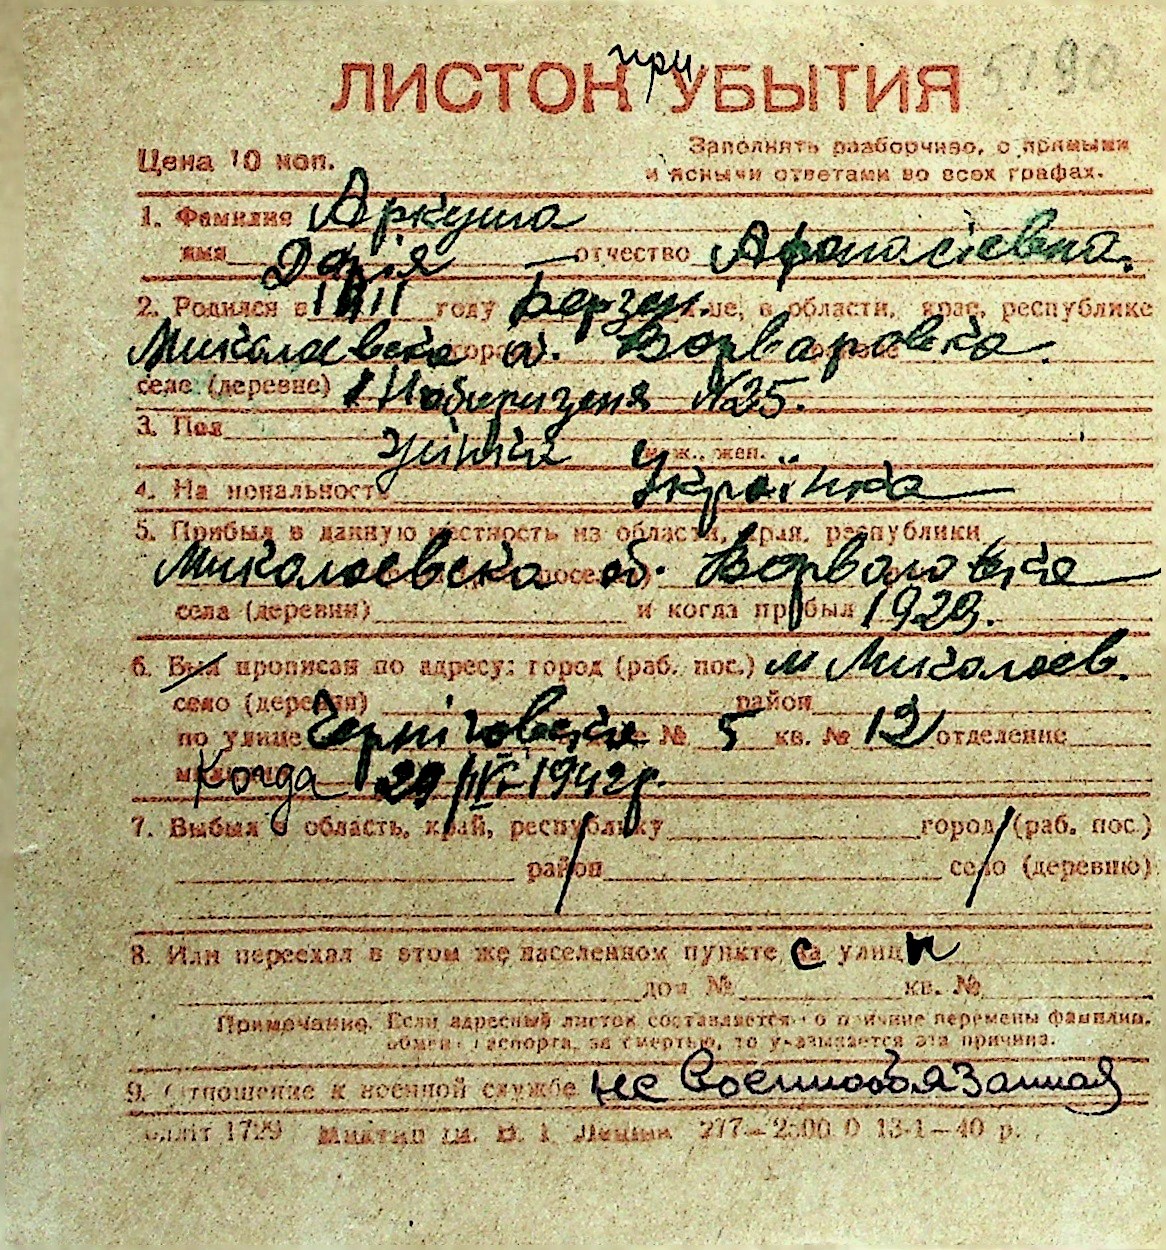 при
ЛИСТОК УБЫТИЯ
Цена 10 коп.
Заполнять разборчиво, с прямыми
и ясными ответами во всех графах.
1. Фамилия Аркуша
имя Дарія отчество Афонасіевна.
2. Родился в 1911 году области, крае, республике
Миколаевска об. Ворваровка.
село (деревне) Набирижня №25.
3. Пол жінка муж., жен.
4. Национальность Українка
5. Прибыл в данную местность из области, края, республики
Миколаевска об. Ворваровка
села (деревни) и когда прибыл 1929.
6. Был прописан по адресу: город (раб. пос.) м Миколаев.
село (деревня) район
по улице Чернiговска № 5 кв. № 12 отделение
Когда 29/IV-1942р.
7. Выбыл в область, край, республику город (раб. пос.)
район село (деревню)
8. Или переехал в этом же населенном пункте с улици
дом № кв. №
Примечание. Если адресный листок составляется по причине перемены фамилии,
обмена паспорта, за смертью, то указывается эта причина.
9. Отношение к военной службе не военнообязанная
1729 277—2500 0 13-1—40 р.